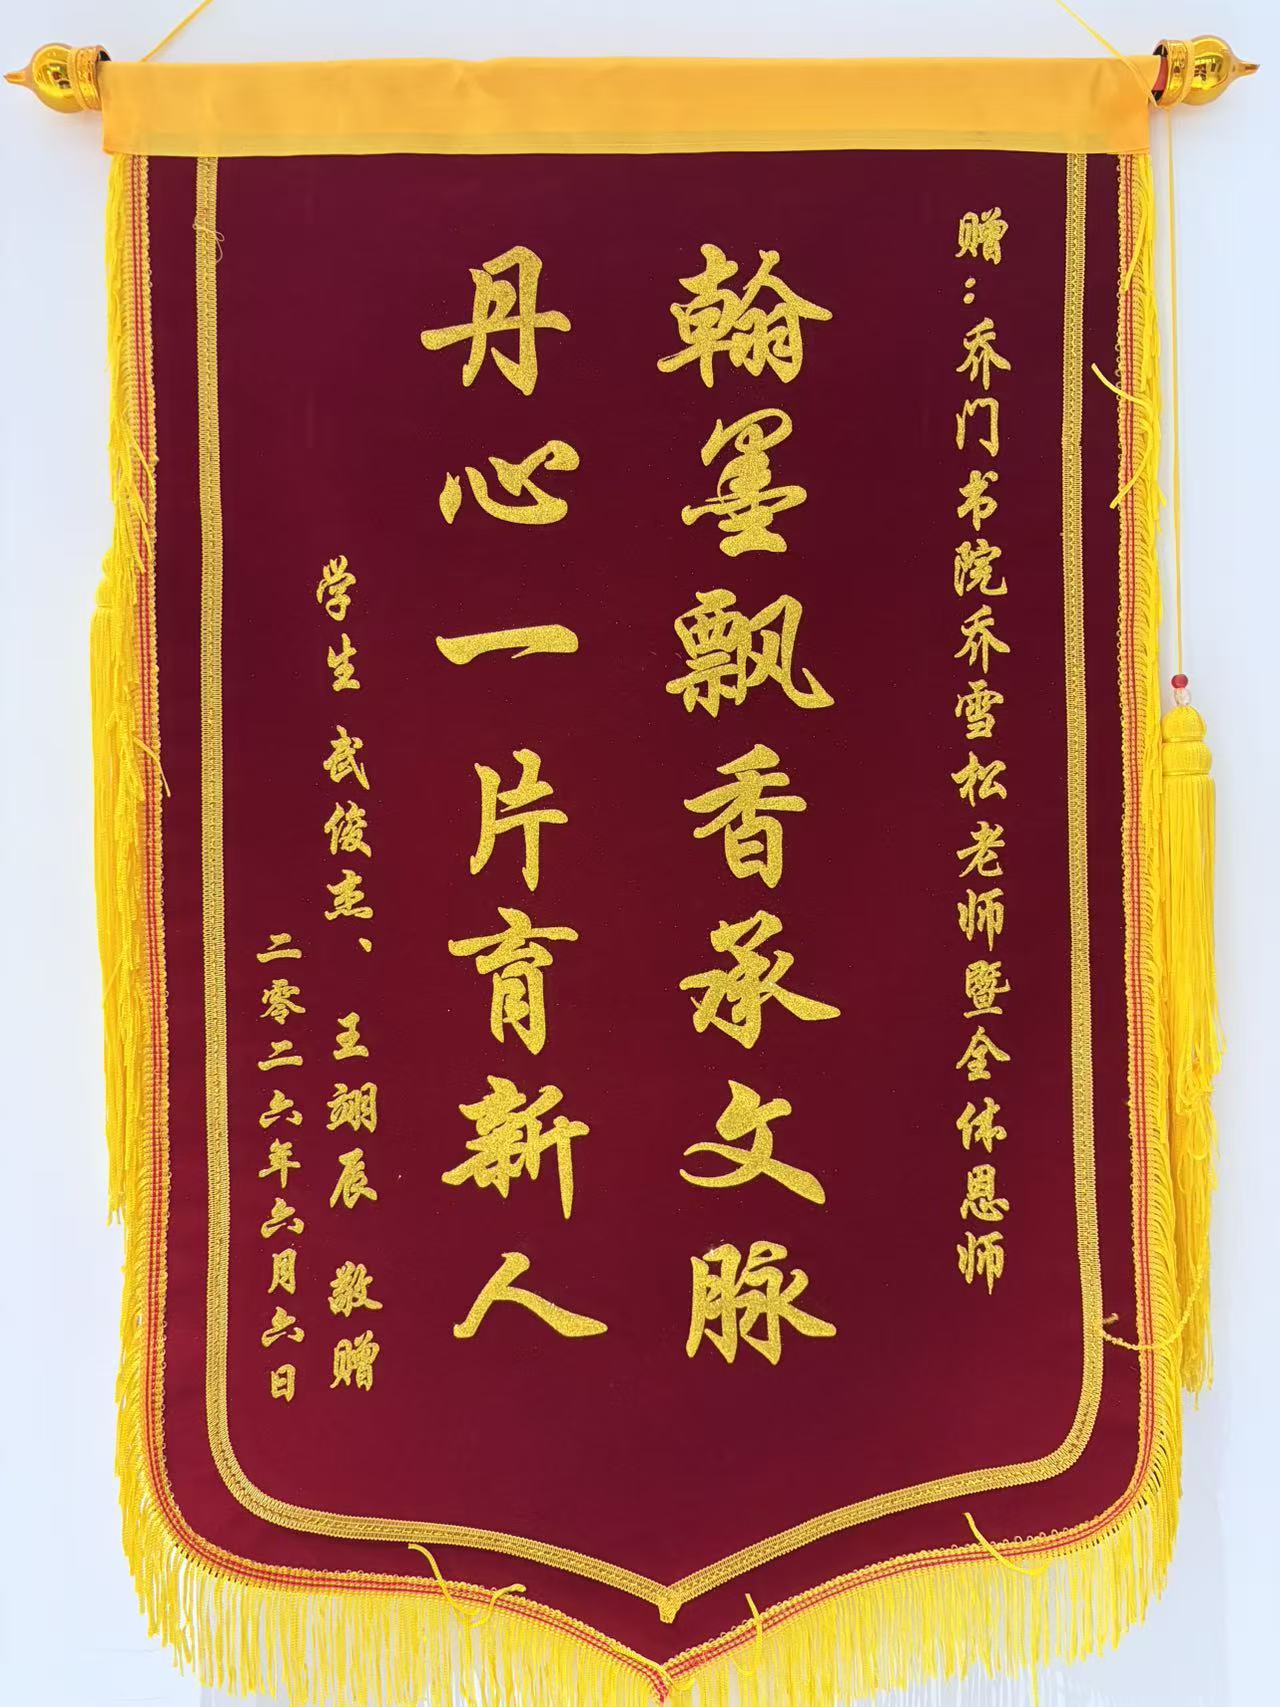 赠：乔门书院乔雪松老师暨全体恩师
翰墨飘香承文脉
丹心一片育新人
学生 武俊杰、 王翊辰 敬赠
二零二六年六月六日